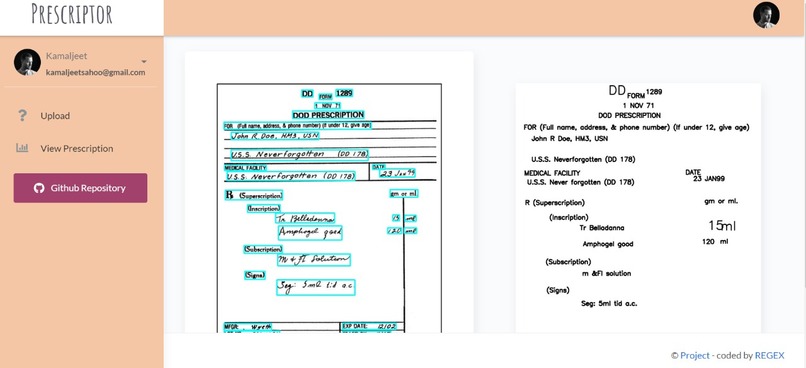 PRESCRIPTOR
Kamaljeet
kamaljeetsahoo@gmail.com
Upload
View Prescription
Github Repository
DD FORM 1289
1 NOV 71
DOD PRESCRIPTION
FOR (Full name, address, & phone number) (If under 12, give age)
John R Doe, HM3, USN
U.S.S. Neverforgotten (DD 178)
MEDICAL FACILITY
DATE
U.S.S. Neverforgotten (DD 178)
23 Jan 99
R (Superscription)
gm or ml.
(Inscription)
Tr Belladonna
15 ml
Amphogel qsad
120 ml
(Subscription)
M & Ft Solution
(Signa)
Sig: 5ml tid a.c.
MFGR:
EXP DATE: 12/02
DD FORM 1289
1 NOV 71
DOD PRESCRIPTION
FOR (Full name, address, & phone number) (If under 12, give age)
John R Doe, HM3, USN
U.S.S. Neverforgotten (DD 178)
MEDICAL FACILITY
DATE
U.S.S. Never forgotten (DD 178)
23 JAN99
R (Superscription)
gm or ml.
(Inscription)
Tr Belladonna
15ml
Amphogel good
120 ml
(Subscription)
m &FI solution
(Signs)
Seg: 5ml tid a.c.
© Project - coded by REGEX